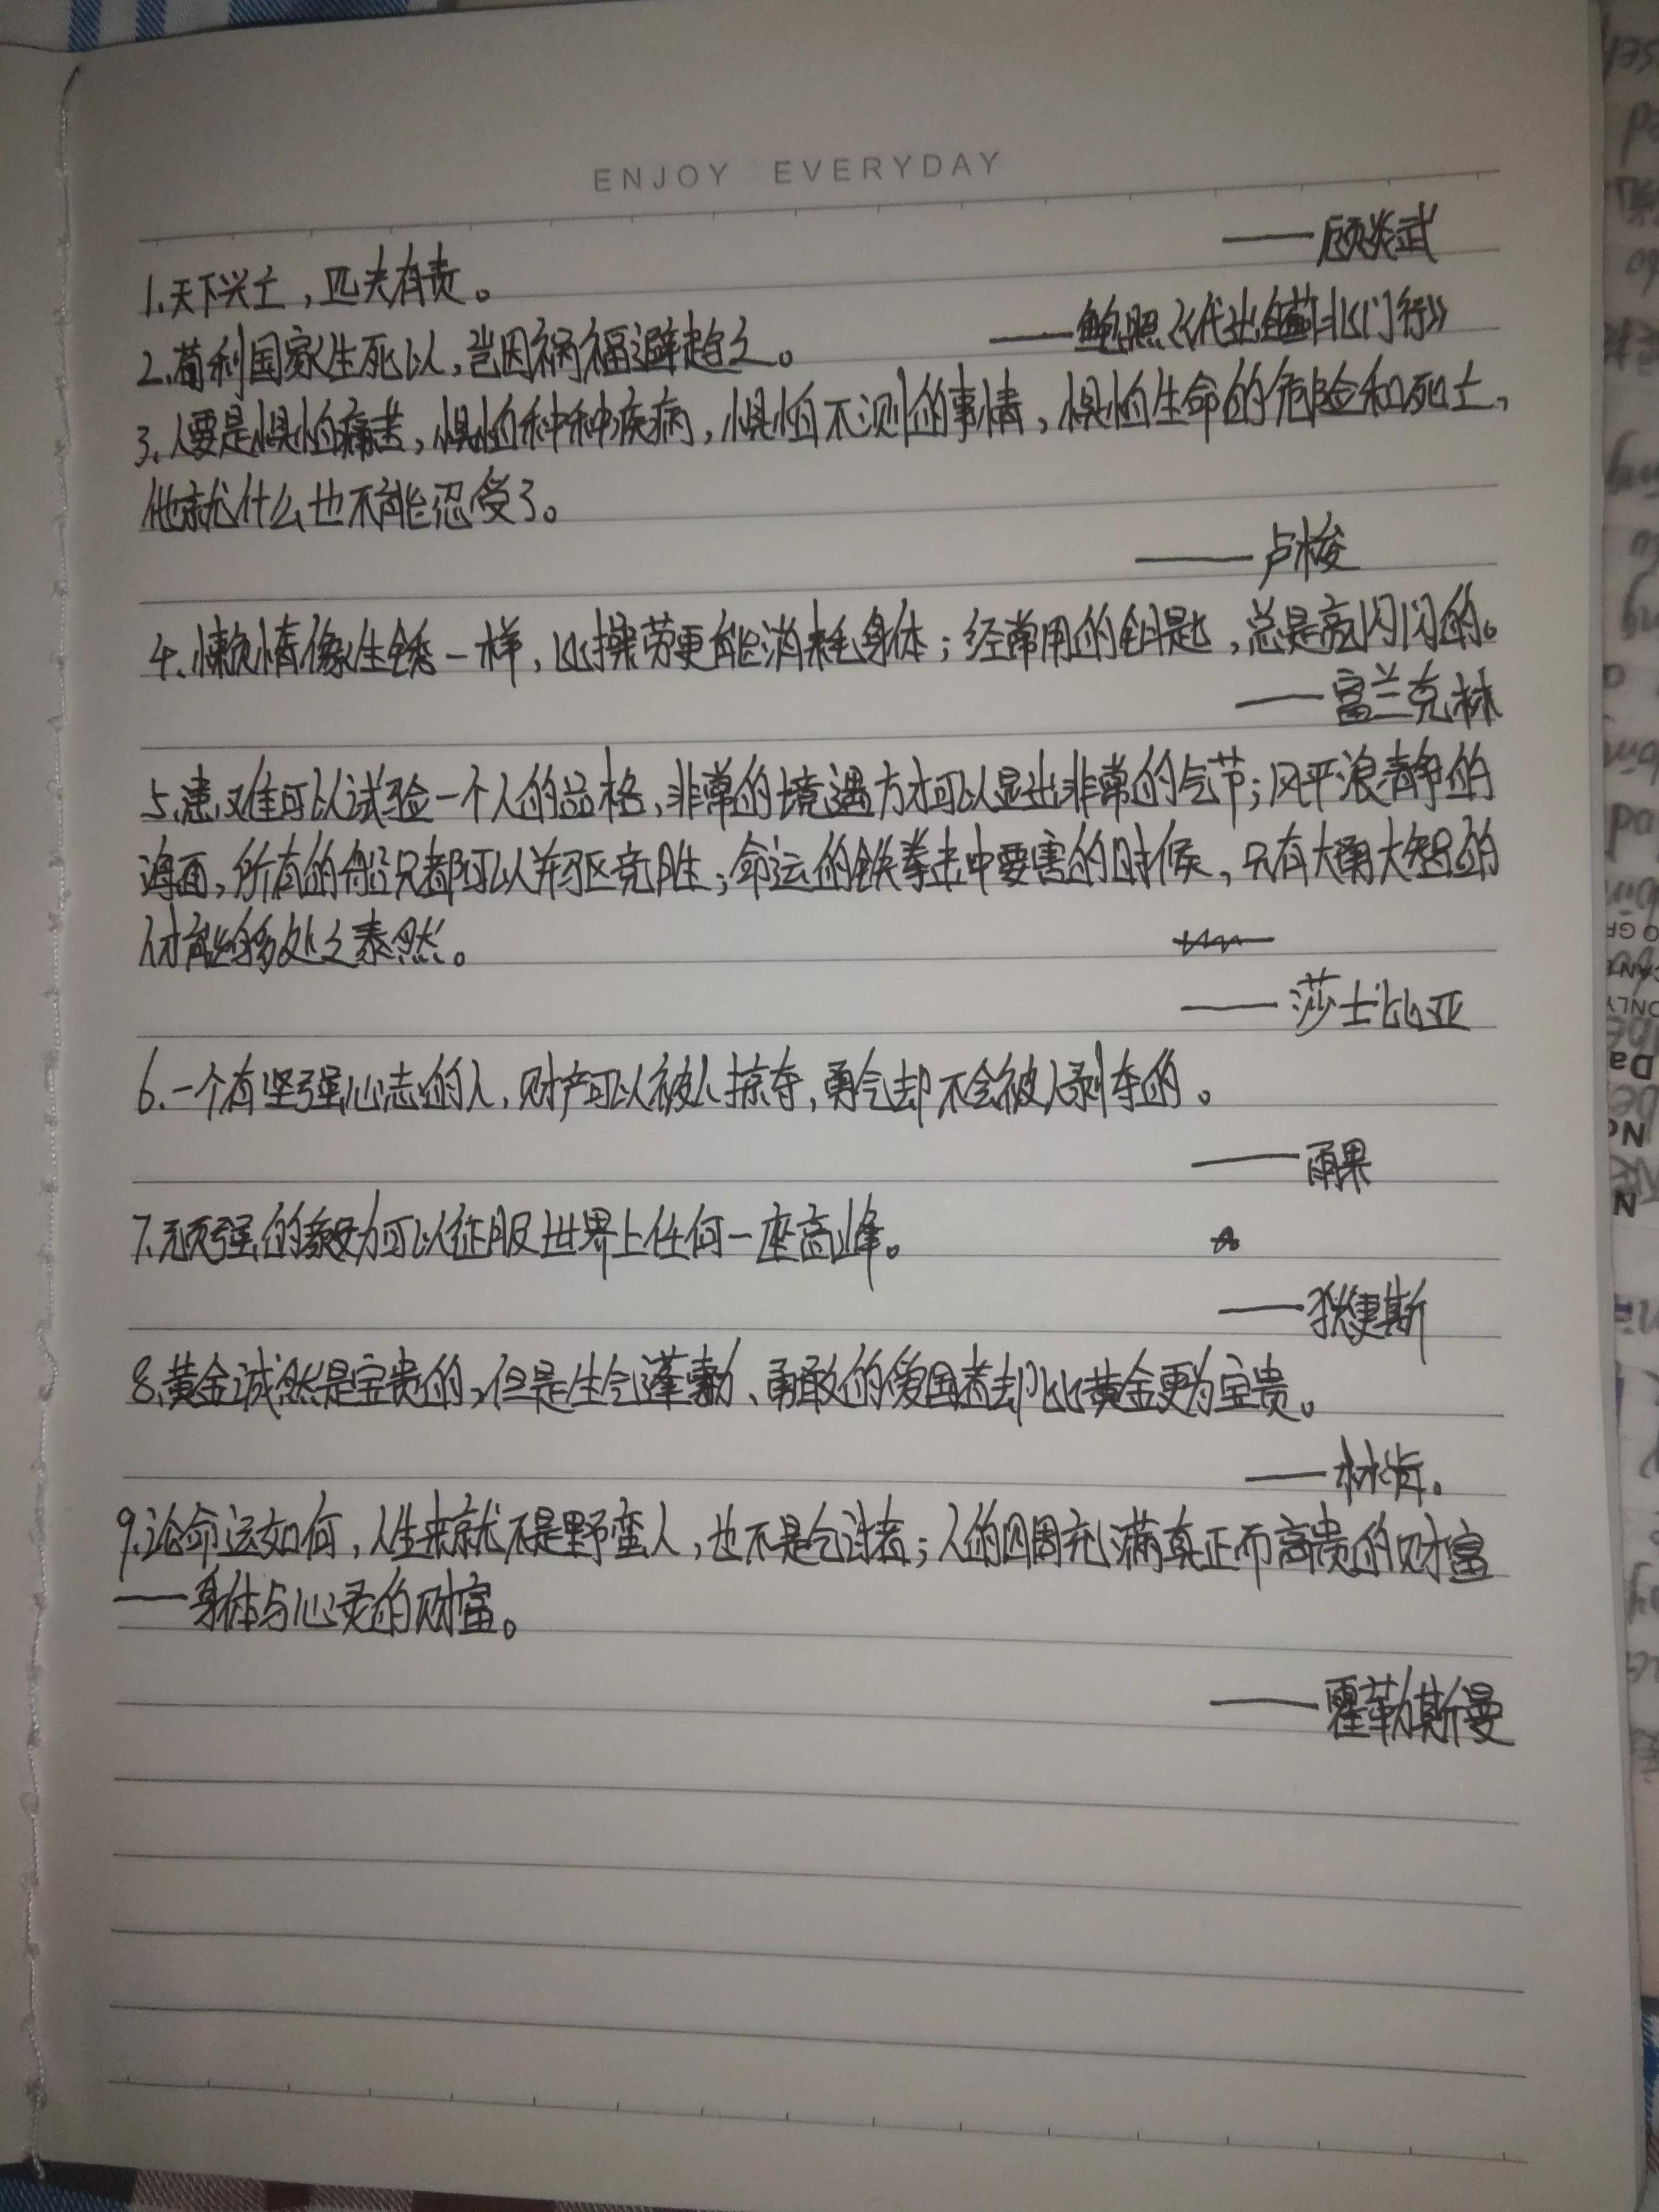 ENJOY EVERYDAY
——顾炎武
1.天下兴亡,匹夫有责。
2.苟利国家生死以,岂因祸福避趋之。 ——鲍照《代出自蓟北门行》
3.人要是惧怕痛苦,惧怕种种疾病,惧怕不测的事情,惧怕生命的危险和死亡,
他就什么也不能忍受了。
——卢梭
4.懒惰像生锈一样,比操劳更能消耗身体;经常用的钥匙,总是亮闪闪的。
——富兰克林
5.患难可以试验一个人的品格,非常的境遇方才可以显出非常的气节;风平浪静的
海面,所有的船只都可以并驱竞胜;命运的铁拳击中要害的时候,只有大勇大智的
人才能够处之泰然。
——莎士比亚
6.一个有坚强心志的人,财产可以被人掠夺,勇气却不会被人剥夺的。
——雨果
7.顽强的毅力可以征服世界上任何一座高峰。
——狄更斯
8.黄金诚然是宝贵的,但是生气蓬勃、勇敢的爱国者却比黄金更为宝贵。
——林肯。
9.论命运如何,人生来就不是野蛮人,也不是乞讨者;人的四周充满真正而高贵的财富
——身体与心灵的财富。
——霍勒斯曼